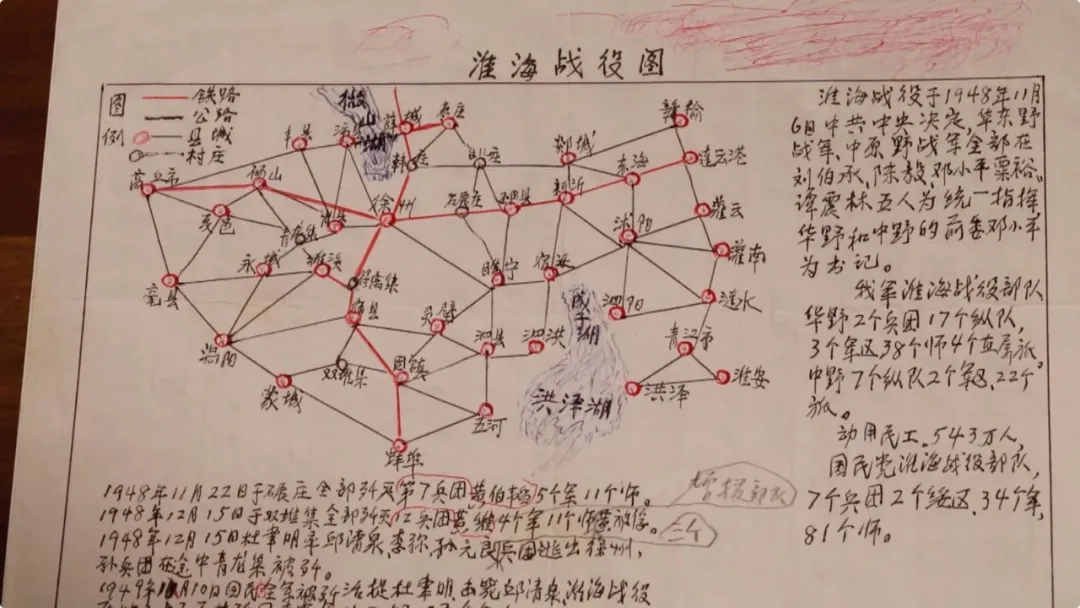 淮海战役图
图例
铁路
公路
县城
村庄
丰县
微山湖
薛城
枣庄
韩庄
郯城
赣榆
东海
连云港
商丘市
砀山
徐州
新沂
灌云
沭阳
夏邑
青龙集
永城
睢宁
宿迁
灌南
亳县
宿县
灵璧
泗县
泗洪
成子湖
泗阳
涟水
涡阳
双堆集
固镇
洪泽湖
洪泽
淮安
蒙城
五河
蚌埠
淮海战役于1948年11月
6日中共中央决定,华东野
战军、中原野战军全部在
刘伯承、陈毅、邓小平粟裕。
谭震林五人为统一指挥
华野和中野的前委邓小平
为书记。
我军淮海战役部队
华野2个兵团17个纵队,
3个军区38个师4个直属旅。
中野7个纵队2个军区、22个
旅。
动用民工、543万人,
国民党淮海战役部队,
7个兵团2个绥区、34个军,
81个师。
1948年11月22日于碾庄全部歼灭第7兵团黄伯韬5个军11个师。
增援部队
1948年12月15日于双堆集全部歼灭12兵团黄维4个军11个师黄放学。
三个
1948年12月15日杜聿明率邱清泉、李弥、孙元良兵团逃出徐州,
孙兵团在途中青龙集被歼。
1949年1月10日国民全军被歼活捉杜聿明、击毙邱清泉、淮海战役